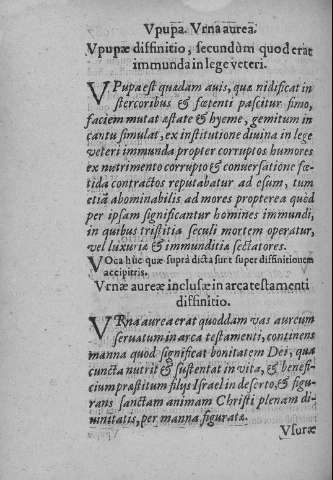 Vpupa. Vrna aurea.
Vpupæ diffinitio, secundùm quod erat
immunda in lege veteri.
VPupa est quædam auis, quæ nidificat in
stercoribus & fœtenti pascitur fimo,
faciem mutat æstate & hyeme, gemitum in
cantu simulat, ex institutione diuina in lege
veteri immunda propter corruptos humores
ex nutrimento corrupto & conuersatione fœ-
tida contractos reputabatur ad esum, tum
etiã abominabilis ad mores propterea quòd
per ipsam significantur homines immundi,
in quibus tristitia seculi mortem operatur,
vel luxuriæ & immunditiæ sectatores.
VOca huc quæ suprà dicta sunt super diffinitionem
accipitris.
Vrnæ aureæ inclusæ in arca testamenti
diffinitio.
VRna aurea erat quoddam vas aureum
seruatum in arca testamenti, continens
manna quod significat bonitatem Dei, qua
cuncta nutrit & sustentat in vita, & benefi-
cium præstitum filijs Israel in deserto, & figu-
rans sanctam animam Christi plenam di-
uinitatis, per manna figuratæ.
Vsuræ